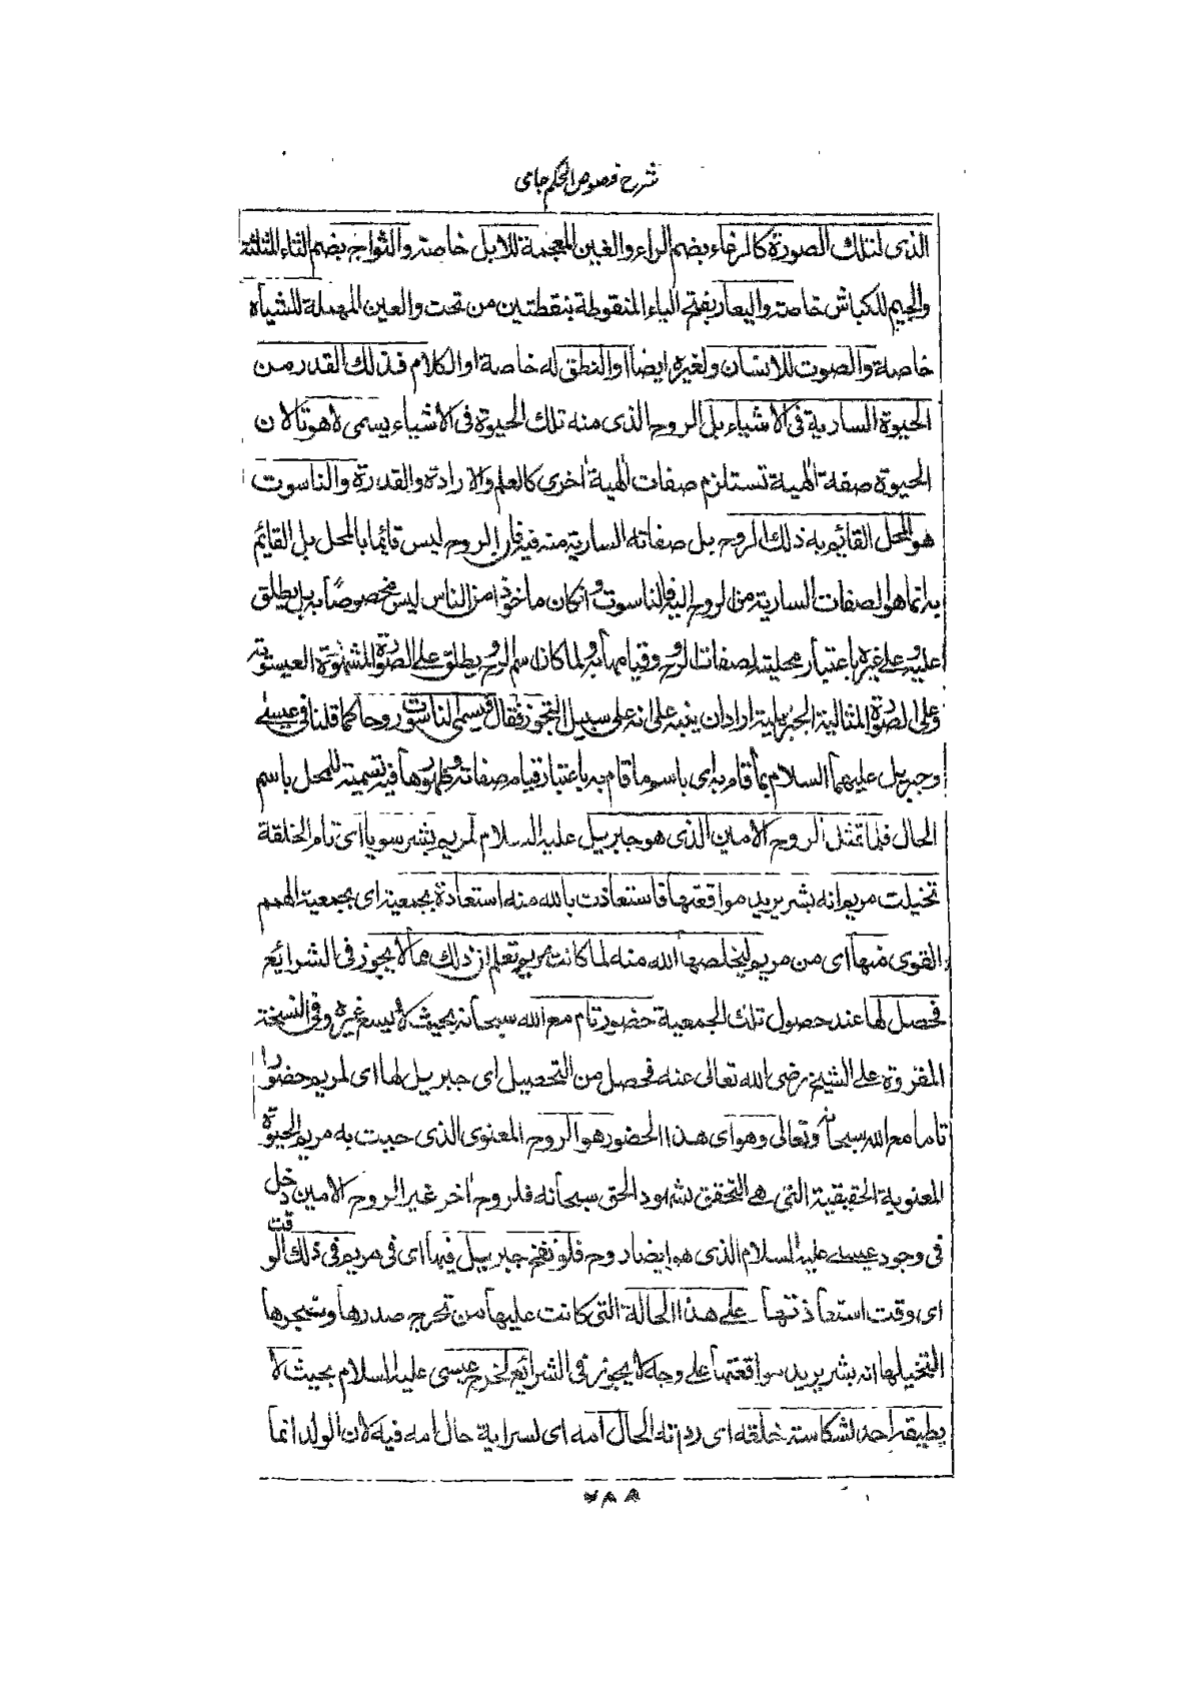 شرح فصوص الحكم جامى
الذى لتلك الصورة كالرغاء بضم الراء والغين المعجمة للابل خاصة والثواج بضم الثاء المثلثة
والجيم للكباش خاصة واليعار بفتح الياء المنقوطة بنقطتين من تحت والعين المهملة للشياه
خاصة والصوت للانسان ولغيره ايضا او النطق له خاصة او الكلام فذلك القدر من
الحيوة السارية فى الاشياء بل الروح الذى منه تلك الحيوة فى الاشياء يسمى لاهوتا لان
الحيوة صفة الهية تستلزم صفات الهية اخرى كالعلم والارادة والقدرة والناسوت
هو المحل القائم به ذلك الروح بل صفاته السارية منه فيه فان الروح ليس قايما بالمحل بل القائم
به انما هو الصفات السارية من الروح اليه فالناسوت وان كان ماخوذا من الناس ليس مخصوصا به بل يطلق
عليه وعلى غيره باعتبار محليته لصفات الروح وقيامها به ولما كان اسم الروح يطلق على الصورة المشهودة العيسوية
وعلى الصورة المثالية الجبرئيلية اراد ان ينبه على انه على سبيل التجوز فقال فيسمى الناسوت روحا كما قلنا فى عيسى
وجبريل عليهما السلام بما قام به اى باسم ما قام به باعتبار قيام صفاته وظهورها فيه تسمية للمحل باسم
الحال فلما تمثل الروح الامين الذى هو جبرييل عليه السلام لمريم بشر سويا اى تام الخلقة
تخيلت مريم انه بشر يريد مواقعتها فاستعاذت بالله منه استعاذة بجمعية اى بجمعية الهمم
القوى منها اى من مريم ليخلصها الله منه لما كانت مريم تعلم ان ذلك مما لا يجوز فى الشرائع
فحصل لها عند حصول تلك الجمعية حضور تام مع الله سبحانه بحيث لا يسع غيره وفى النسخة
المقروة على الشيخ رضى الله تعالى عنه فحصل من التحصيل اى جبريل لها اى لمريم حضورا
تاما مع الله سبحانه وتعالى وهو اى هذا الحضور هو الروح المعنوى الذى حييت به مريم الحيوة
المعنوية الحقيقية التى هى التحقق بشهود الحق سبحانه فلروح اخر غير الروح الامين دخل
فى وجود عيسى عليه السلام الذى هو ايضا روح فلو نفخ جبرييل فيها اى فى مريم فى ذلك الوقت
اى وقت استعاذتها على هذا الحالة التى كانت عليها من تحرج صدرها وضجرها
التخيلها انه بشر يريد مواقعتها على وجه لا يجوز فى الشرائع لخرج عيسى عليه السلام بحيث لا
يطيقه احد لشكاسة خلقه اى رداءته لحال امه اى لسراية حال امه فيه لان الولد انما